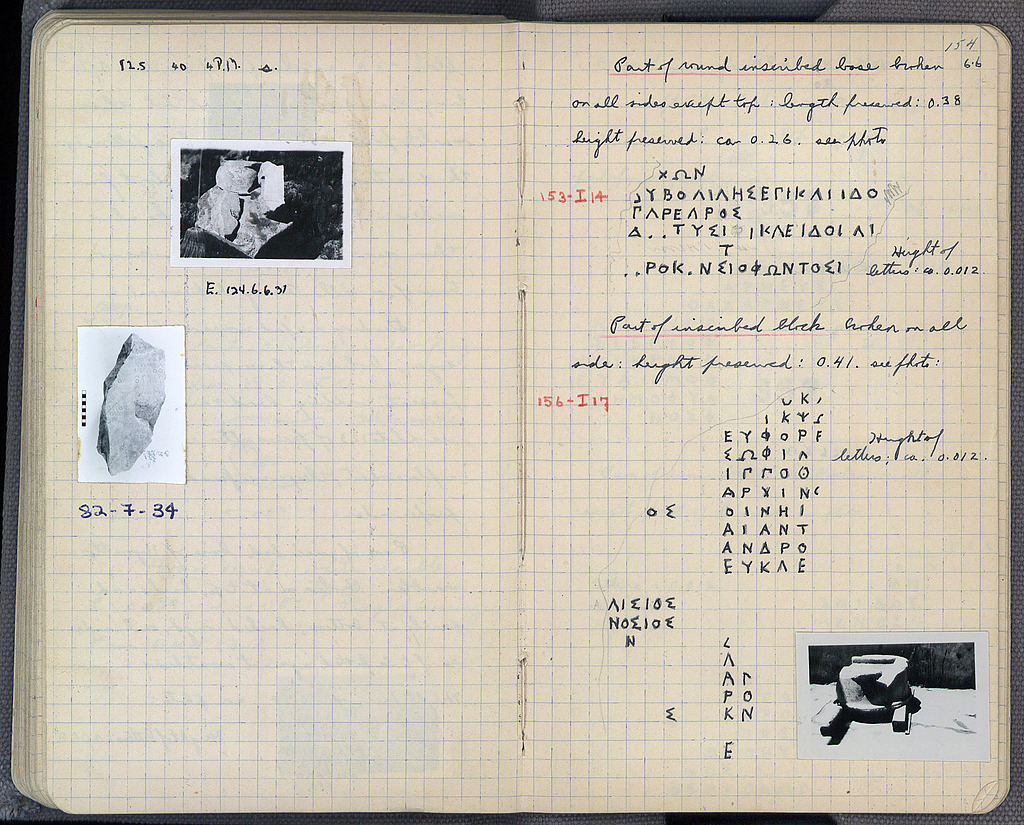 82.5 40 4 P.M. Δ.
E. 124.6.6.31
82-7-34
154
Part of round inscribed base broken 6.6
on all sides except top: length preserved: 0.38
height preserved: ca 0.26. see photo
ΧΩΝ
153-I 14
ΥΒΟΛΙΛΗΣΕΓΙΚΛΙΙΔΟ
ΓΑΡΕΔΡΟΣ
Δ..ΤΥΣΙ ΙΚΛΕΙΔΟΙΛΙ
Τ
..ΡΟΚ.ΝΣΙΟΦΩΝΤΟΣΙ
Height of
letters: ca. 0.012.
Part of inscribed block broken on all
side: height preserved: 0.41. see photo:
156-I 17
Κ
ΙΚΨ
ΕΥΦΟΡΕ
ΣΩΦΙΛ
ΙΓΓΟΘ
ΑΡΧΙΝ
ΟΣ ΟΙΝΗΙ
ΑΙΑΝΤ
ΑΝΔΡΟ
ΕΥΚΛΕ
Height of
letters: ca. 0.012.
ΛΙΣΙΟΣ
ΝΟΣΙΟΣ
Ν
Λ
ΑΓ
ΡΟ
Σ ΚΝ
Ε